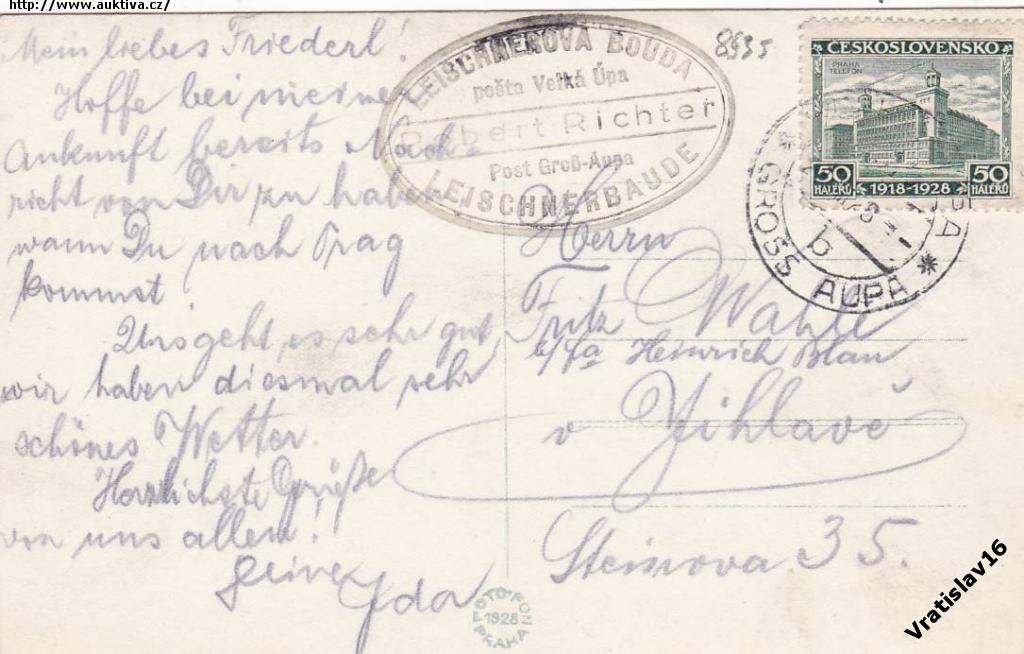 http://www.auktiva.cz/
Mein liebes Friederl!
Hoffe bei meiner
Ankunft bereits Nach-
richt von Dir zu haben
wann Du nach Prag
kommst.
Uns geht es sehr gut,
wir haben diesmal sehr
schönes Wetter.
Herzlichste Grüße
von uns allen!
Deine
Ida
LEISCHNEROVA BOUDA
pošta Velká Úpa
Robert Richter
Post Groß-Aupa
LEISCHNERBAUDE
8935
ČESKOSLOVENSKO
PRAHA
TELEFON
50 HALÉRŮ
1918-1928
50 HALÉRŮ
* GROSS AUPA *
b
Herrn
Fritz Wahle
b/Fa Heinrich Blau
v Jihlavě
35.
FOTO-FON
1928
PRAHA
Vratislav16